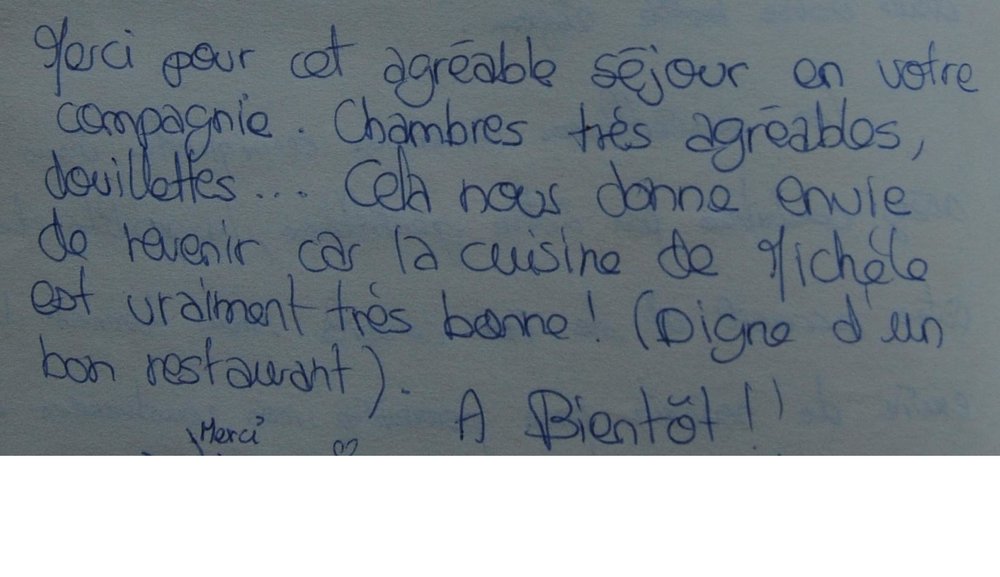 Merci pour cet agréable séjour en votre
compagnie. Chambres très agréables,
douillettes... Cela nous donne envie
de revenir car la cuisine de Michèle
est vraiment très bonne! (Digne d'un
bon restaurant).
A Bientôt!!
Merci